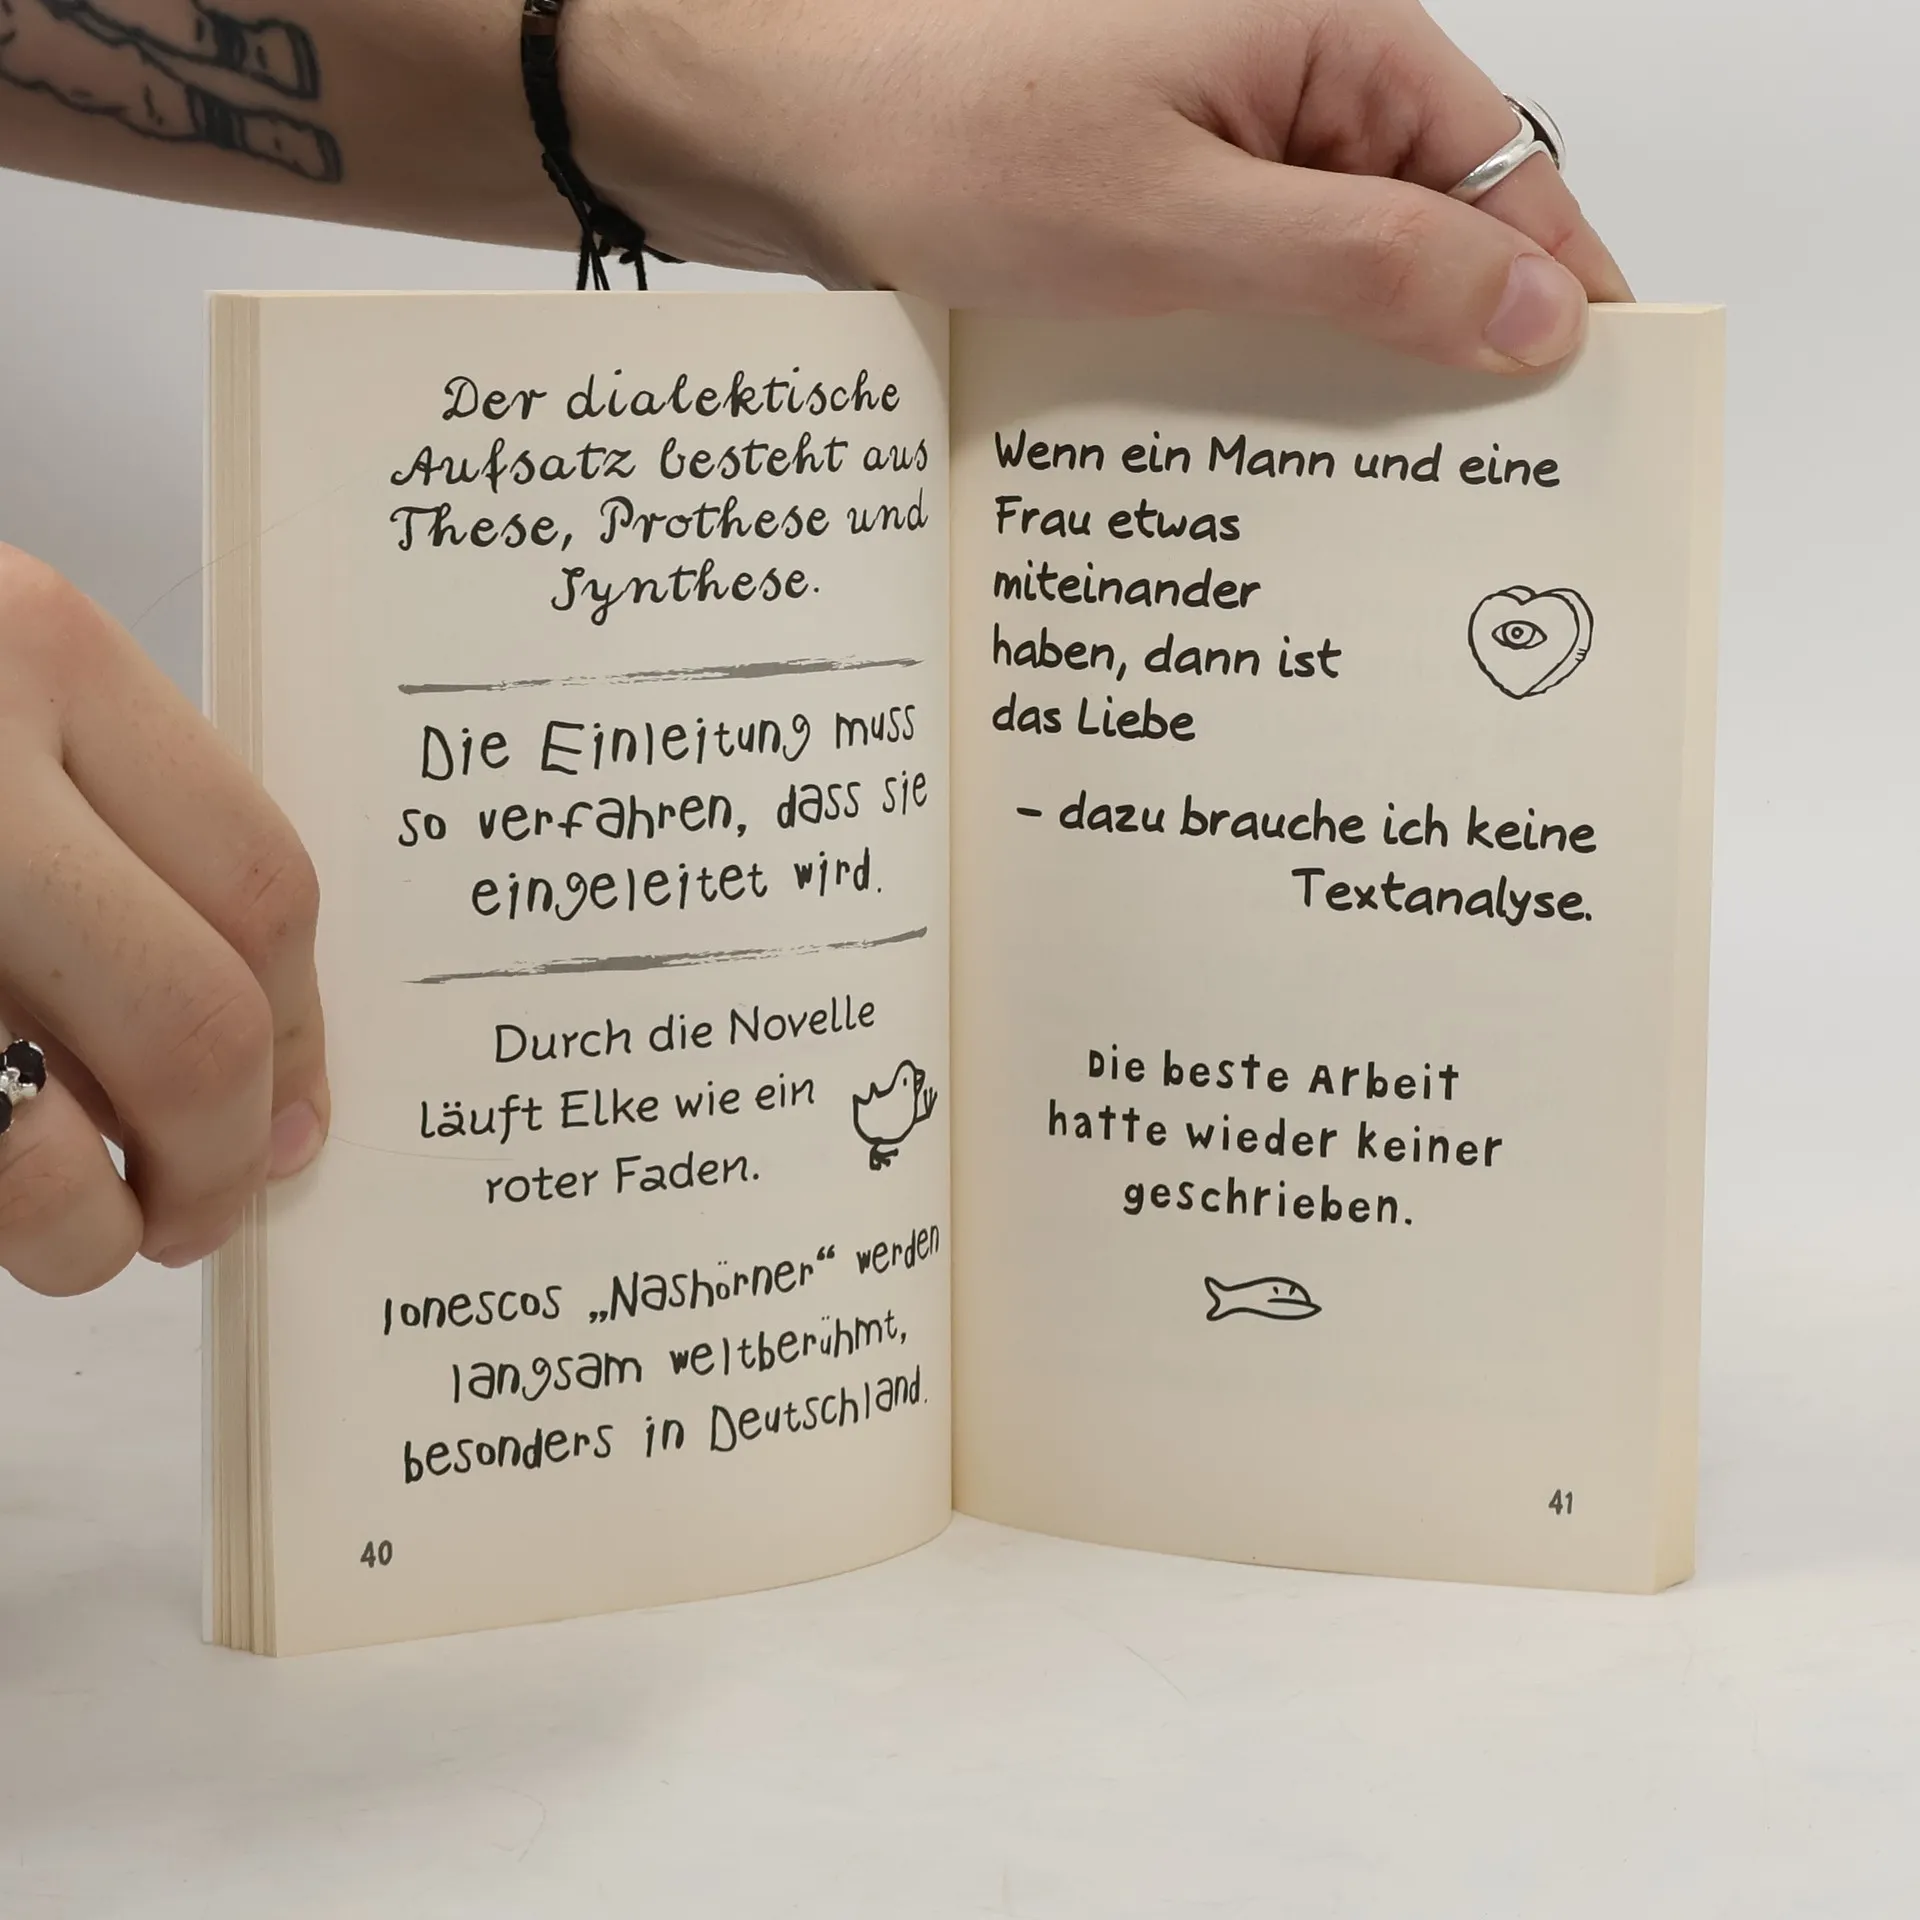 Der dialektische
Aufsatz besteht aus
These, Prothese und
Synthese.
Die Einleitung muss
so verfahren, dass sie
eingeleitet wird.
Durch die Novelle
läuft Elke wie ein
roter Faden.
Ionescos „Nashörner“ werden
langsam weltberühmt,
besonders in Deutschland.
40
Wenn ein Mann und eine
Frau etwas
miteinander
haben, dann ist
das Liebe
– dazu brauche ich keine
Textanalyse.
Die beste Arbeit
hatte wieder keiner
geschrieben.
41